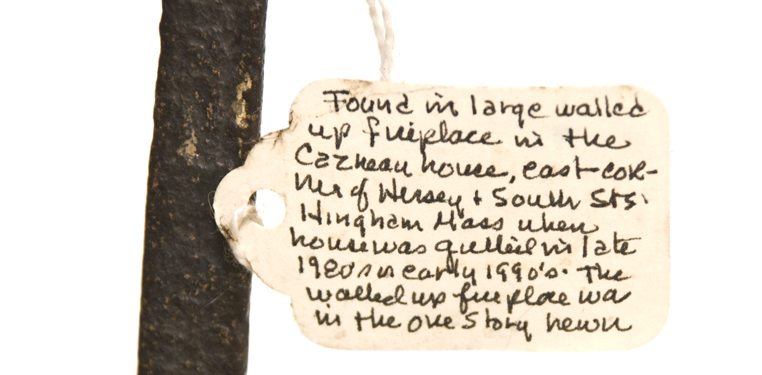 Found in large walled
up fireplace in the
Cazneau house, east cor-
ner of Hersey + South Sts.
Hingham Mass when
house was gutted in late
1980's or early 1990's. The
walled up fireplace wa
in the one story